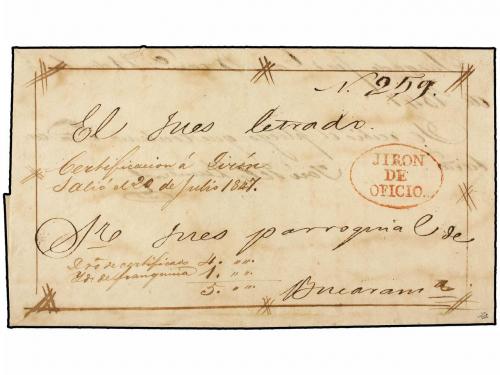 N. 259.
El Jues letrado.
Certificacion á Jirón
Salió el 20 de Julio 1847.
JIRON
DE
OFICIO
Sr Jues parroquial de
Dro de certificado 4. " "
Yd. de franquicia 1. " "
5. " "
Bucaram a